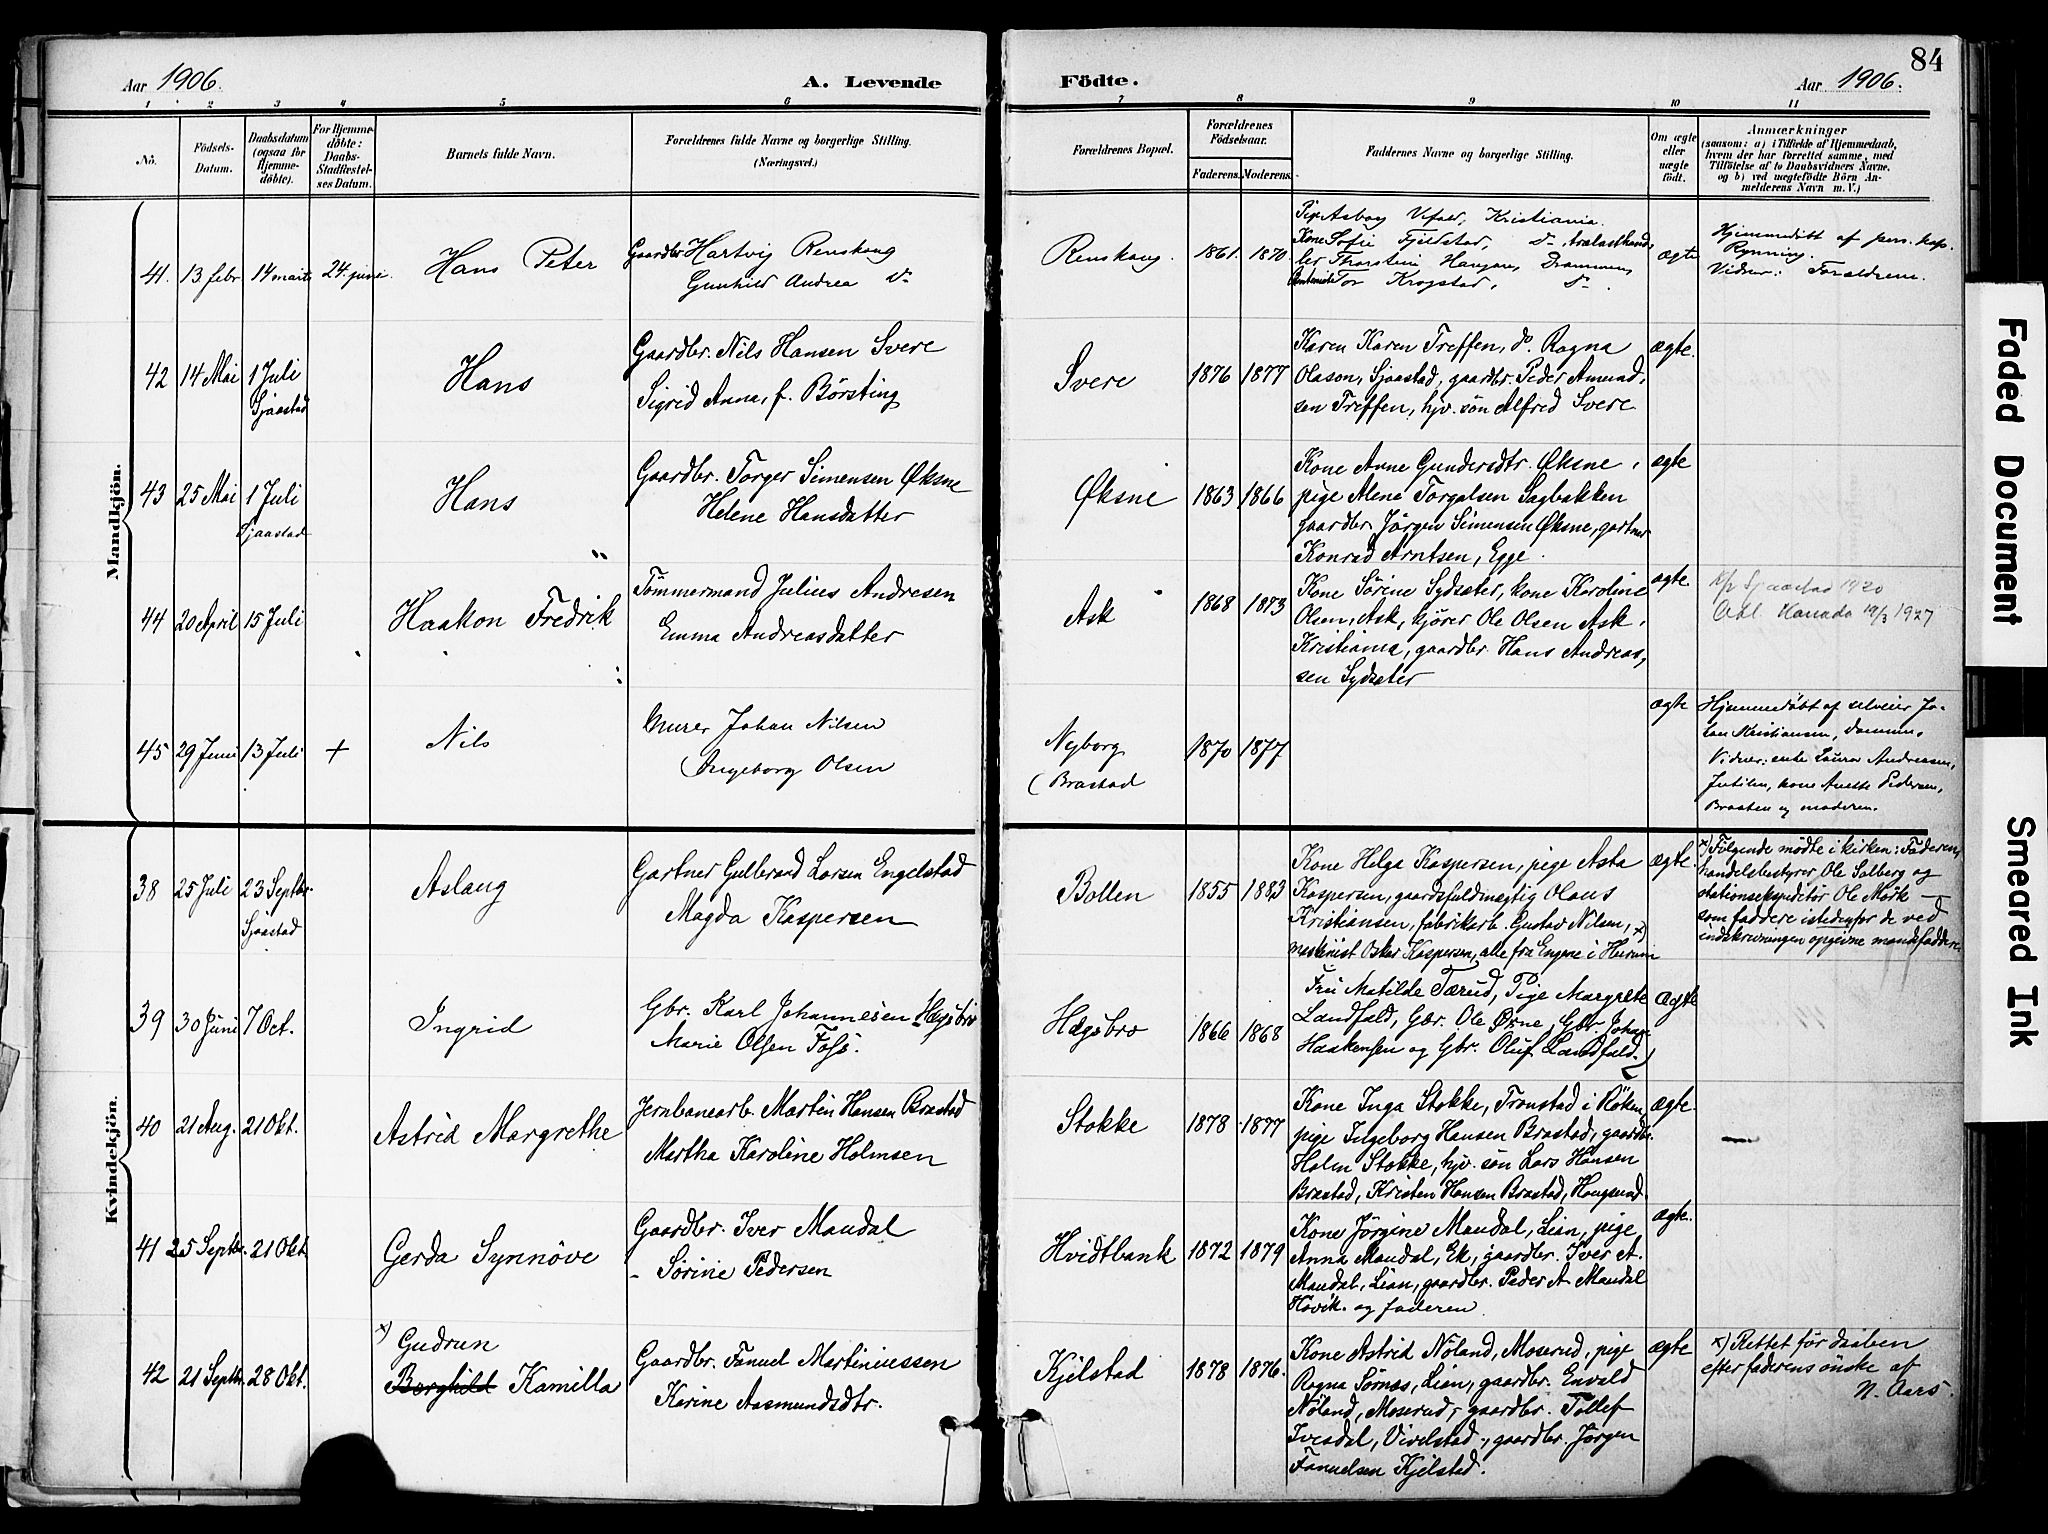 Aar 1906.
A. Levende
Födte.
Aar 1906.
84
1 2 3 4 5 6 7 8 9 10 11
No.
Födsels-Datum.
Daabsdatum (ogsaa for Hjemme-döbte).
For Hjemme-döbte: Daabs-Stadfæstel-ses Datum.
Barnets fulde Navn.
Forældrenes fulde Navne og borgerlige Stilling.
(Næringsvei.)
Forældrenes Bopæl.
Forældrenes Födselsaar.
Faderens. Moderens.
Faddernes Navne og borgerlige Stilling.
Om ægte eller uægte födt.
Anmærkninger
(saasom: a) i Tilfælde af Hjemmedaab,
hvem der har forrettet samme, med
Tilföielse af to Daabsvidners Navne,
og b) ved uægtefödte Börn An-
melderens Navn m. V.)
Mandkjön.
41. 13 febr 14 marts 24. juni. Hans Peter
Gaardbr Hartvig Renskoug
Gunhild Andrea Do
Renskoug. 1861. 1870
Kristiania.
Kone Sofie Fjeldstad, Do trælasthand-
ler Thorstein Haugan, Drammen,
Tor Krogstad, Do.
ægte
Hjemmedöbt af pers. kap.
Rynning.
Vidner: Forældrene.
42 14 Mai 1 Juli
Sjaastad
Hans
Gaardbr. Nils Hansen Svere
Sigrid Anna, f. Börsting
Svere 1876 1877
Karen Karen Treffen, do. Ragna
Olason, Sjaastad, gaardbr. Peder Amund-
sen Treffen, hjv. sön Alfred Svere
ægte.
43 25 Mai 1 Juli
Sjaastad
Hans
Gaardbr. Torger Simensen Øksne
Helene Hansdatter
Øksne 1863 1866
Kone Anne Gundersdtr. Øksne,
pige Alena Torgalsen Sagbakken
gaardbr. Jörgen Simensen Øksne, gartner
Konrad Arntsen, Egge.
ægte
44 20 April 15 Juli
Haakon Fredrik
Tömmermand Julius Andresen
Emma Andreasdatter
Ask 1868 1873
Kone Sörine Sydsæter, kone Karoline
Olsen, Ask, kjörer Ole Olsen Ask,
Kristiania, gaardbr. Hans Andreas-
sen Sydsæter
ægte.
Sjaastad 1920
Utl. Kanada 19/3 1927
45 29 Juni 13 Juli + Nils
Murer Johan Nilsen
(Ingeborg Olsen
Nyborg
(Brastad
1870 1877
ægte
Hjemmedöbt af selveier Jo-
han Kristiansen,
Vidner: enke Laura Andreasen,
kone Anette Pedersen,
Braaten og moderen.
Kvindekjön.
38 25 Juli 23 Septbr.
Sjaastad
Aslaug
Gartner Gulbrand Larsen Engelstad
Magda Kaspersen
Bollen 1855 1883
Kone Helga Kaspersen, pige Asta
Kaspersen, gaardsfuldmægtig Olaus
Kristiansen, fabrikarb. Gustav Nilsen, x)
maskinist Oskar Kaspersen, alle fra Engene i Hurum
ægte.
x) Fölgende mödte i kirken: Faderen,
handelsbestyrer Ole Solberg og
stationsekspeditör Ole Mörk —
som faddere istedenfor de ved
indskrivningen opgivne mandsfaddere.
39 30 Juni 7 Oct. Ingrid
Gbr. Karl Johannesen Hægsbro
Marie Olsen Foss.
Hægsbro 1866 1868
Fru Matilde Tærud, Pige Margrete
Landfald, Gbr. Ole Øsne, Gbr. Johan
Haakensen og Gbr. Oluf Landfald.
Ægte
40 21 Aug. 21 Okt. Astrid Margrethe
Jernbanearb. Martin Hansen Brastad
Martha Karoline Holmsen
Stokke 1878 1877
Kone Inga Stokke, Tronstad i Röken,
pige Ingeborg Hansen Brastad, gaardbr.
Holm Stokke, hjv. sön Lars Hansen
Brastad, Kristen Hansen Brastad, Hougsund.
ægte.
41 25 Septbr. 21 Okt. Gerda Synnöve
Gaardbr. Iver Mandal
- Sörine Pedersen
Hvidtbank 1872 1879
Kone Jörgine Mandal, Lian, pige
Anna Mandal, Ek, gaardbr. Iver A.
Mandal, Lian, gaardbr. Peder A Mandal
Hövik. og faderen
ægte.
42 21 Septbr. 28 Okt.
x) Gudrun
Borghild Kamilla
Gaardbr. Fanuel Martiniussen
Karine Aasmundsdtr.
Kjelstad 1878 1876.
Kone Astrid Nöland, Moserud, pige
Ragna Sörnæs, Lian, gaardbr. Envald
Nöland, Moserud, gaardbr. Tollef
Ivesdal, Vivelstad, gaardbr. Jörgen
Fanuelsen Kjelstad.
ægte
x) Rettet för daaben
efter faderens önske af
N. Aars.
Faded Document
Smeared Ink